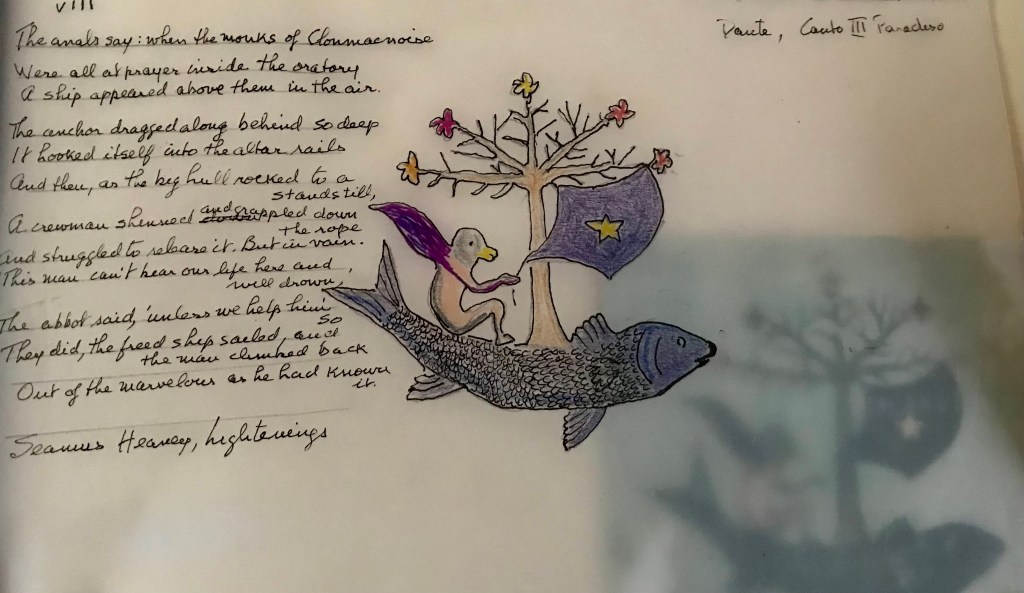 viii
The anals say: when the monks of Clonmacnoise
Were all at prayer inside the oratory
A ship appeared above them in the air.
The anchor dragged along behind so deep
It hooked itself into the altar rails
And then, as the big hull rocked to a
standstill,
A crewman shinned and grappled down
the rope
and struggled to release it. But in vain.
This man can't bear our life here and
will drown,
The abbot said, 'unless we help him'
so
They did, the freed ship sailed, and
the man climbed back
Out of the marvelous as he had known
it.
Seamus Heaney, lightenings
Dante, Canto III Paradiso